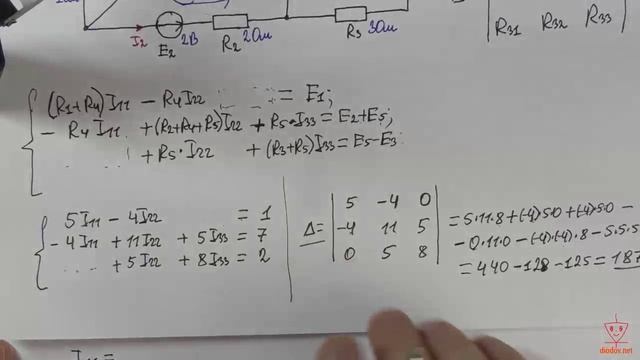 I2 E2 2В R2 2Ом R3 3Ом
R31 R32 R33
(R1+R4)I11 − R4I22 = E1;
− R4 I11 + (R2+R4+R5)I22 + R5·I33 = E2+E5;
+ R5·I22 + (R3+R5)I33 = E5−E3;
5I11 − 4I22 = 1
− 4I11 + 11I22 + 5I33 = 7
.... + 5I22 + 8I33 = 2
Δ= | 5 −4 0 |
| −4 11 5 |
| 0 5 8 |
= 5·11·8+(−4)·5·0+(−4)·5·0 −
− 0·11·0 − (−4)·(−4)·8 − 5·5·5
= 440 − 128 − 125 = 187
I11 =
diodov.net